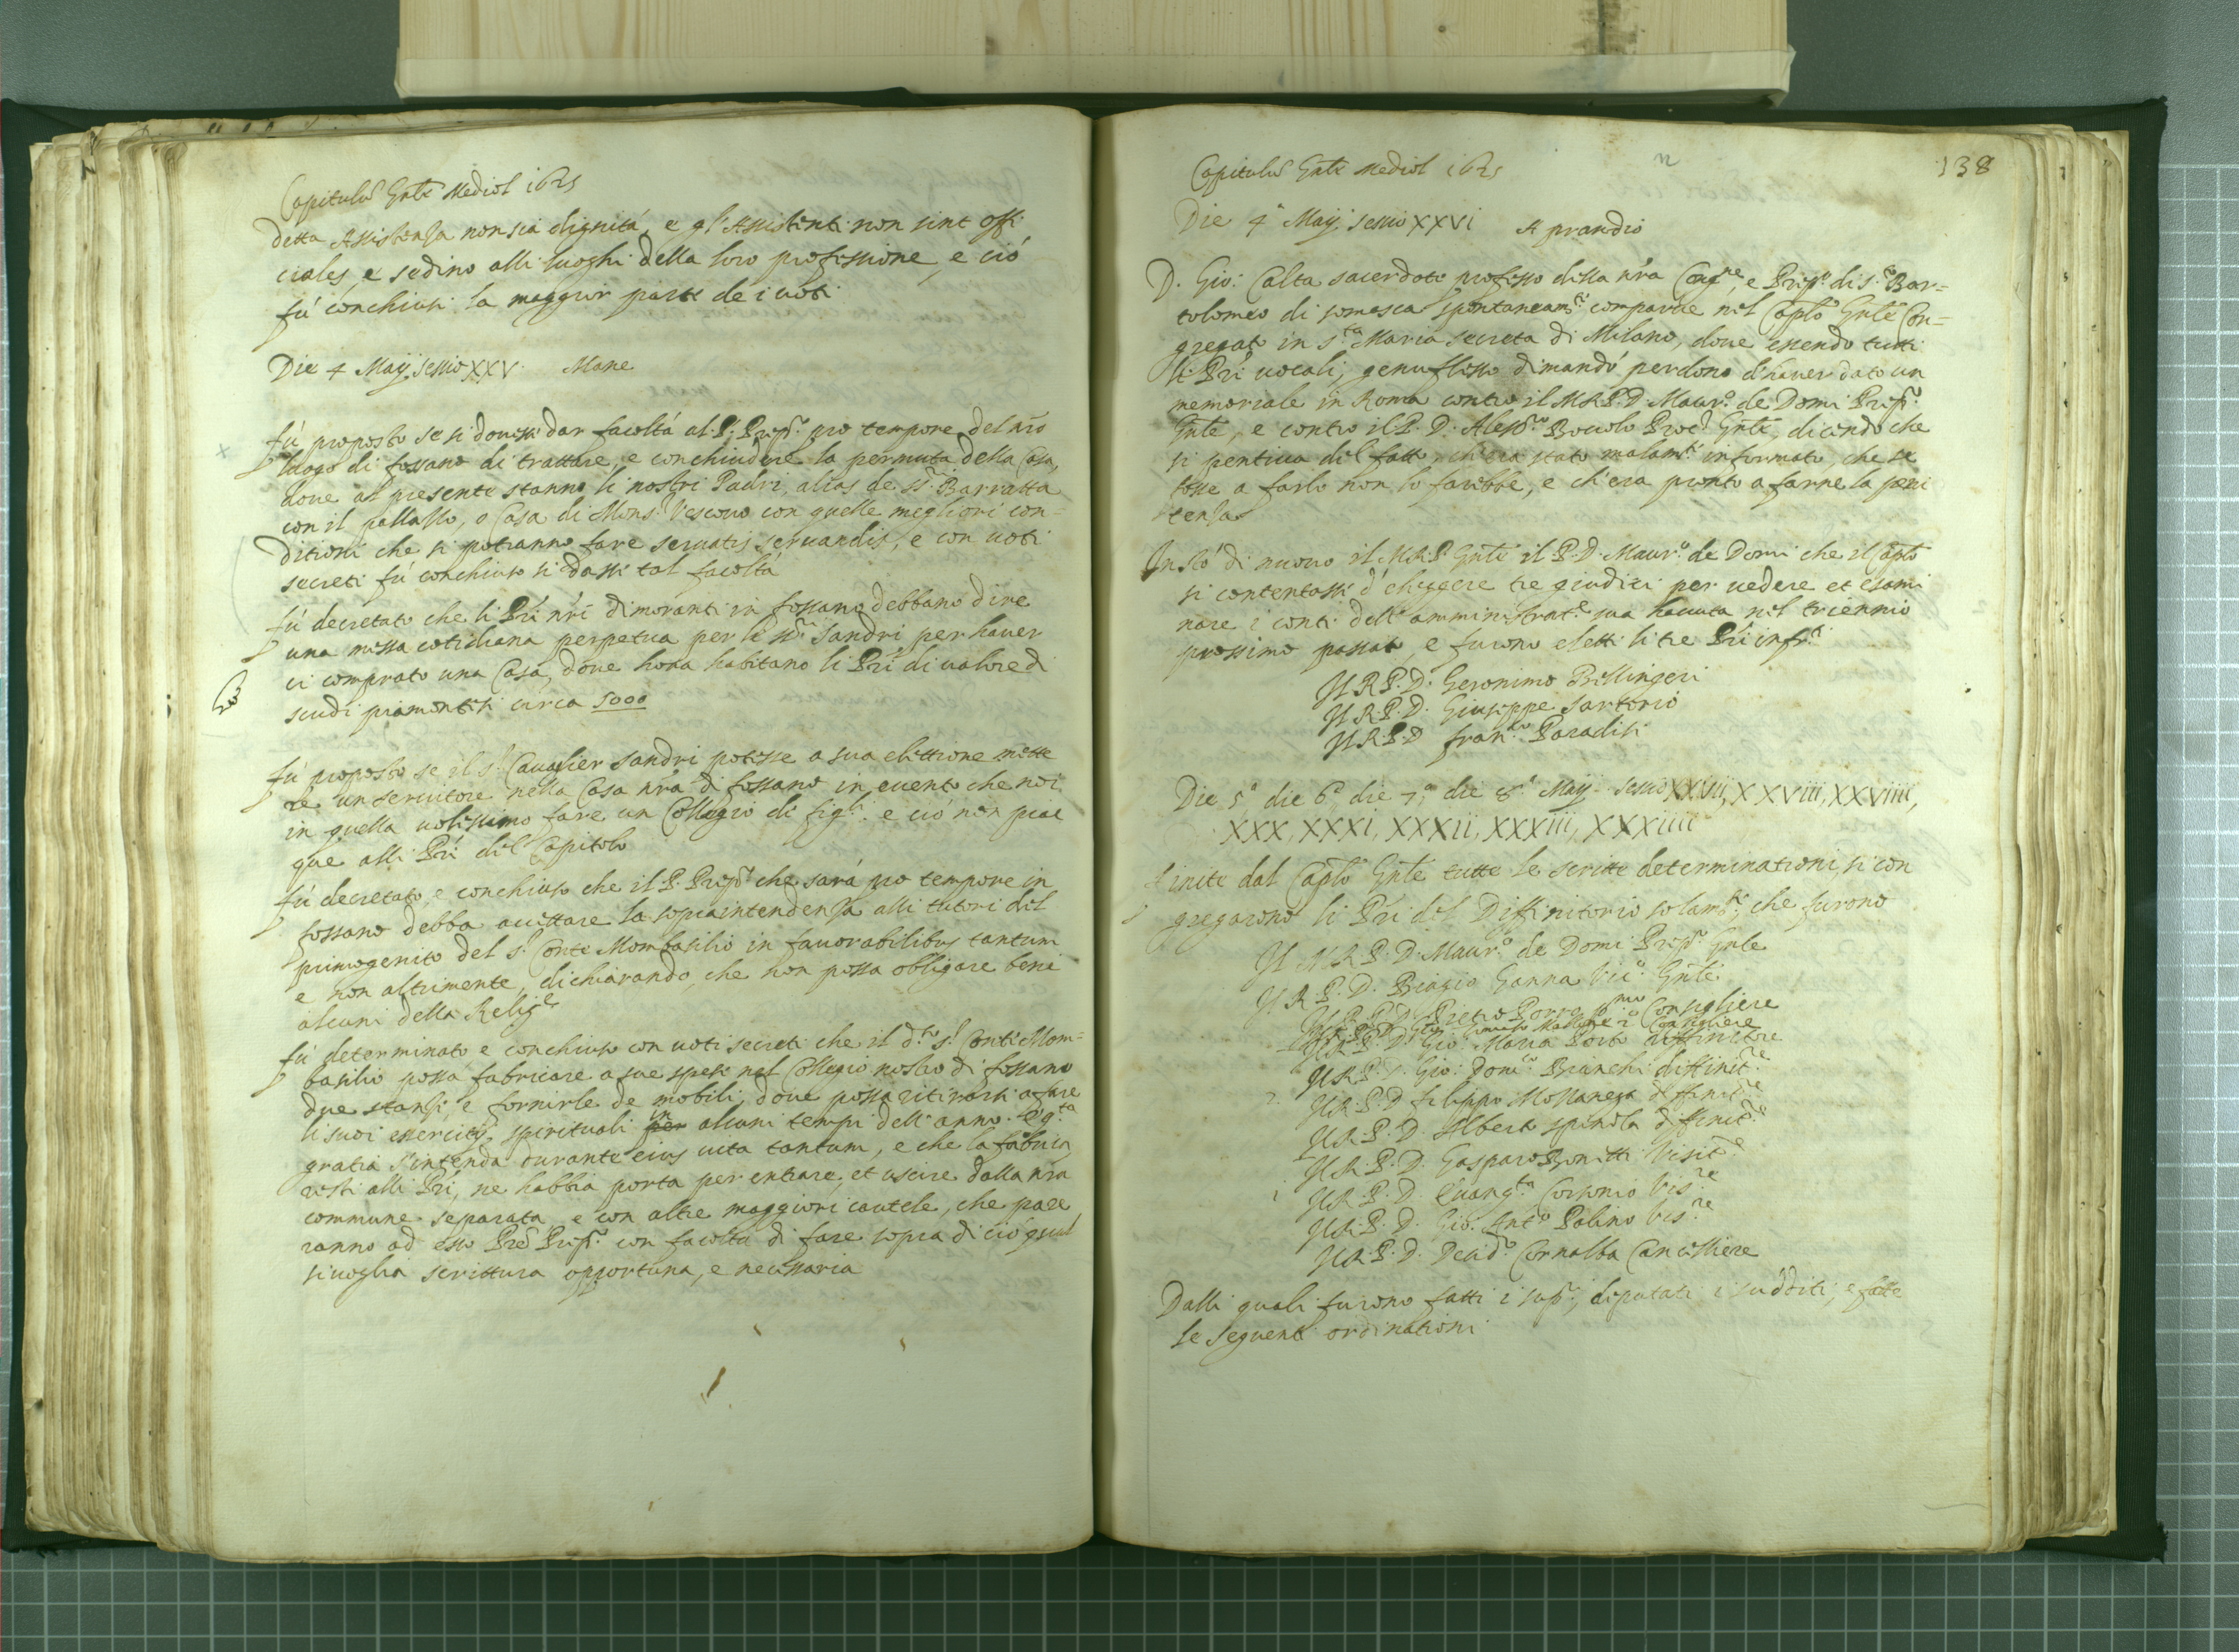 Capitulũ Gnle Mediol 1625
detta Assistenza non sia dignità, e gl'Assistenti non sint offi
ciales, e sedino alli luoghi della loro professione, e ciò
fù conchiuso la maggior parte de i voti
Die 4 Maij sessio XXV. Mane
fù proposto se si dovesse dar facoltà al P. Prep.to pro tempore del nr̃o
luogo di fossano di trattare, e conchiudere la permuta della Casa,
dove al presente stanno li nostri Padri, alias de SS.ri Barratta
con il pallazzo, o Casa di Mons.r Vescovo con quelle megliori con=
ditioni che si potranno fare servatis servandis, e con voti
secreti fù conchiuso si dasse tal facoltà
fù decretato che li Pr̃i nr̃i dimoranti in fossano debbano dire
una messa cotidiana perpetua per li SS.ri Sandri per haver
ci comprato una Casa, dove hora habitano li Pr̃i di valore di
scudi piamontesi circa 5000
fù proposto se il s.r Cavaglier Sandri potesse a sua elettione mette
re un servitore nella Casa nr̃a di fossano in evento che noi
in quella volessimo fare un Collegio di figli. e ciò non piac
que alli Pr̃i del Capitolo
fù decretato, e conchiuso che il P. Prep.to che sarà pro tempore in
fossano debba accettare la sopraintendenza alli tutori del
primogenito del s.r Conte Mombasilio in favorabilibus tantum
e non altrimente, dichiarando, che non possa obligare beni
alcuni della Relig.e
fù determinato e conchiuso con voti secreti che il d.to s.r Conte Mom=
basilio possa fabricare a sue spese nel Collegio nostro di fossano
due stanze, e fornirle de mobili, dove possa ritirarsi a fare
li suoi essercitij spirituali per in alcuni tempi dell'anno. e q.ta
gratia s'intenda durante eius vita tantum, e che la fabrica
resti alli Pr̃i, ne habbia porta per entrare, et uscire dalla nr̃a
commune separata e con altre maggiori cautele, che pare
ranno ad esso Pr̃e Prep.to con facoltà di fare sopra di ciò qual
sivoglia scrittura opportuna, e necessaria
138
Capitulũ Gnle Mediol 1625
Die 4.a Maij sessio XXVI A prandio
D. Gio: Calta sacerdote professo della nr̃a Cong.ne, e Prep.to di S. Bar=
tolomeo di somasca spontaneam.te comparve nel Caplo Gnle Con=
gregato in S.ta Maria Secreta di Milano, dove essendo tutti
li Pr̃i vocali, genuflesso dimandò perdono d'haver dato un
memoriale in Roma contro il M.R.P.D. Maur.o de Domi Prep.to
Gnle, e contro il P. D. Aless.ro Boccolo Proc.r Gnle, dicendo che
si pentiva del fatto, ch'era stato malam.te informato, che se
fosse a farlo non lo farebbe, e ch'era pronto a farne la peni
tenza
Instò di nuovo il M.R.P. Gnle il P.D. Maur.o de Domi che il Caplo
si contentasse d'eleggere tre giudici per vedere et esami
nare i conti dell'amministrat.e sua havuta nel triennio
prossimo passato, e furono eletti li tre Pr̃i infr.ti
Il R.P.D. Geronimo Bellingeri
Il R.P.D. Giuseppe Sartorio
Il R.P.D. Fran.co Paradisi
Die 5.a die 6.a die 7.a die 8.a Maij sessio XXVII, XXVIII, XXVIIII,
XXX, XXXI, XXXII, XXXIII, XXXIIII
finite dal Caplo Gnle tutte le scritte determinationi, si con
gregarono li Pr̃i del Diffinitorio solam.te, che furono
Il M.R.P.D. Maur.o de Domi Prep.to Gnle
Il R.P.D. Biagio Ganna Vic.o Gnle
Il R.P.D. Pietro Porro p.mo Consigliere
2.o Consigliere
Il R.P.D. Gio: Maria Porta diffinitore
Il R.P.D. Gio: Dom.co Bianchi diffinit.re
2. Il R.P.D. Filippo Mossanega diffinit.re
Il R.P.D. Alberto Spinola diffinit.re
Il R.P.D. Gasparo Bonetti Visit.re
1 Il R.P.D. Evang.ta Corsonio Vis.re
Il R.P.D. Gio: Ant.o Palino Vis.re
Il R.P.D. Desid.o Cornalba Cancelliere
Dalli quali furono fatti i sup.ri, deputati i sudditi, e fatte
le seguenti ordinationi